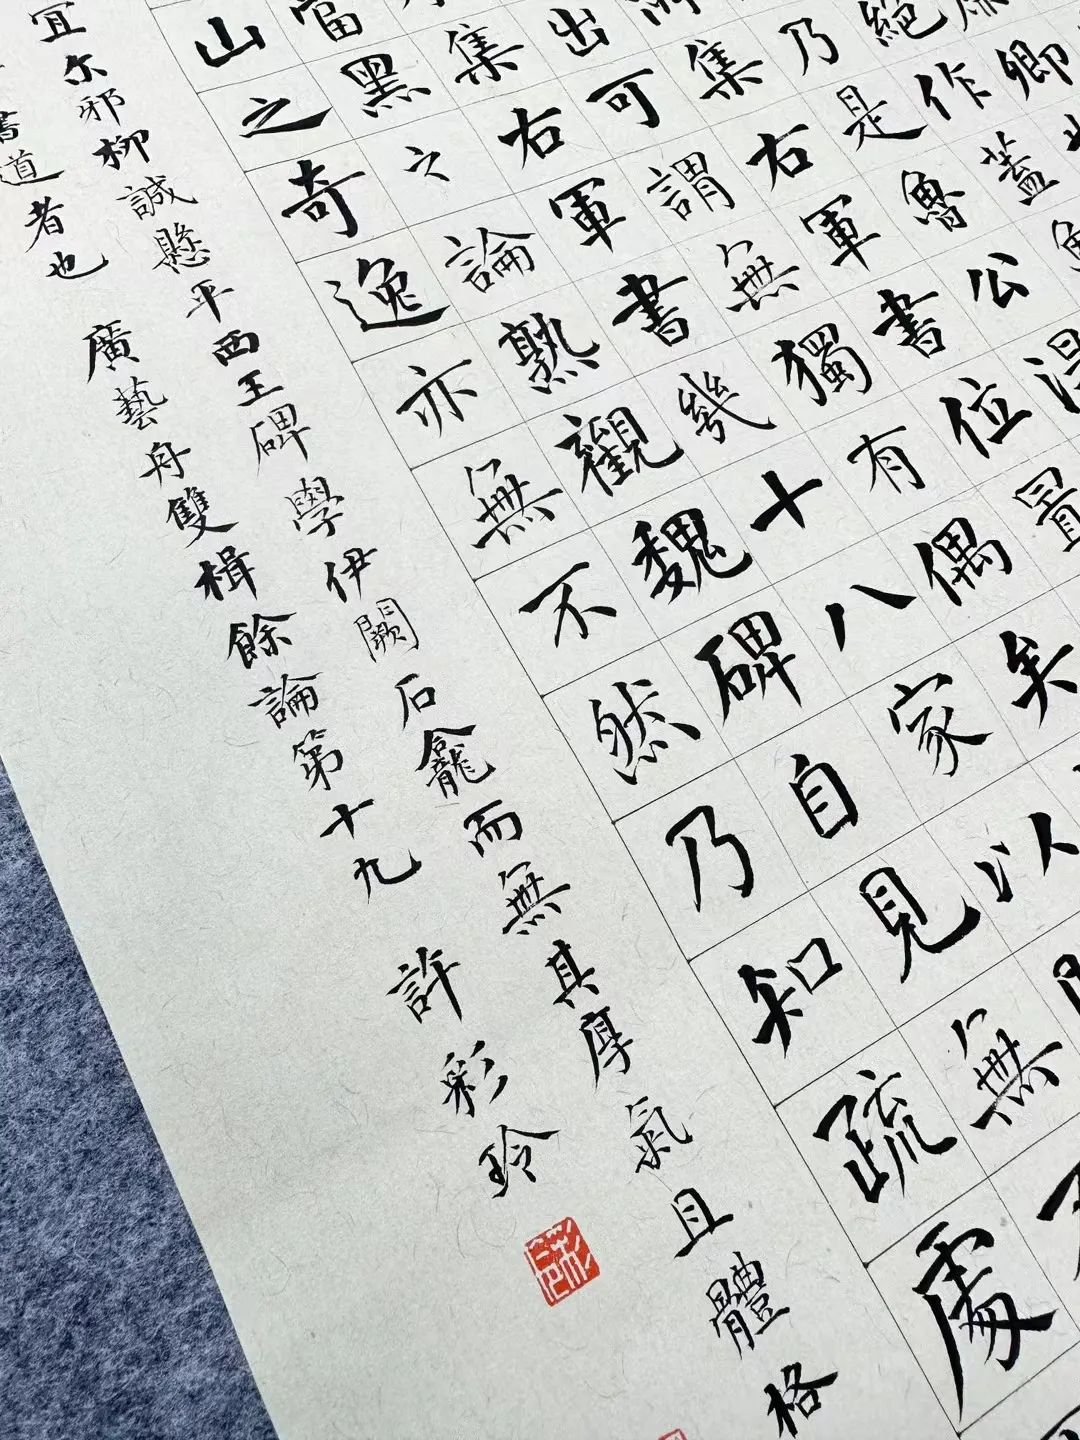 卿
絕作蓋
乃是魯公
集右軍書位置
出可謂無獨有偶矣
集右軍書幾十八家以
當黑之論熟觀魏碑自見無
山之奇逸亦無不然乃知疏處
宜尔邪柳誠懸平西王碑學伊闕石龕而無其厚氣且體格
書道者也 廣藝舟雙楫餘論第十九 許彩玲